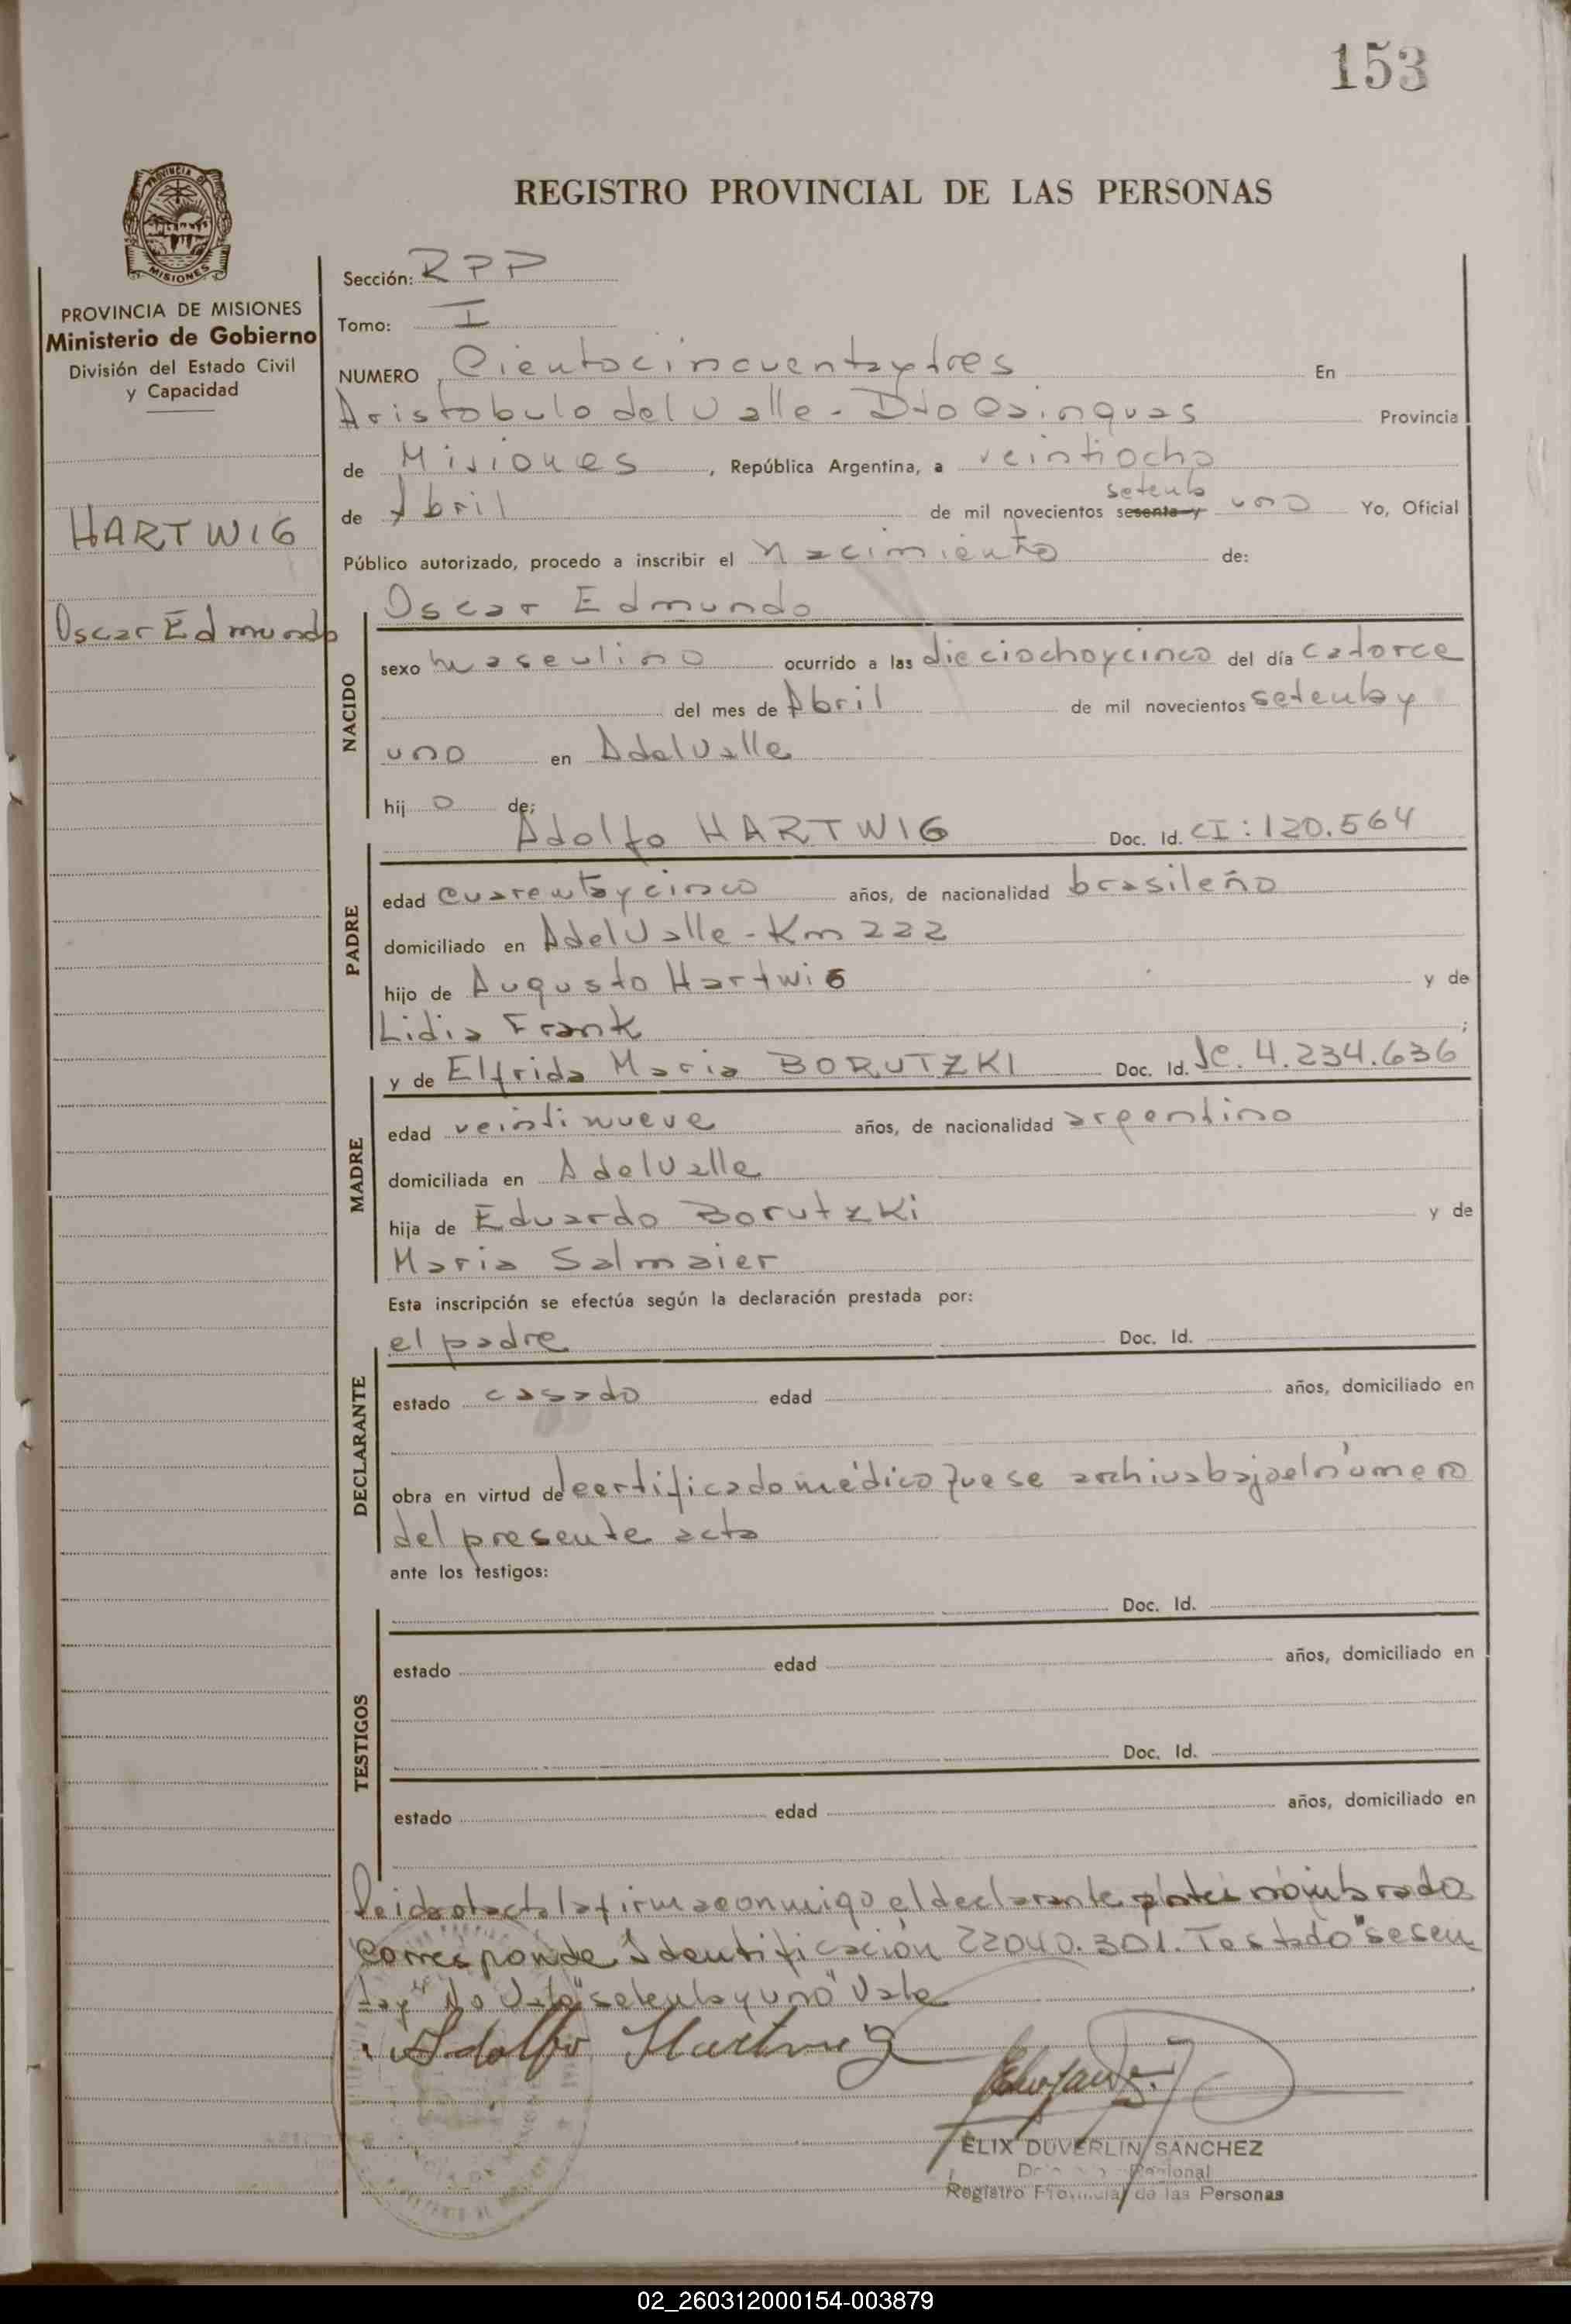 153
REGISTRO PROVINCIAL DE LAS PERSONAS
PROVINCIA DE
MISIONES
PROVINCIA DE MISIONES
Ministerio de Gobierno
División del Estado Civil
y Capacidad
HARTWIG
Oscar Edmundo
Sección: RPP
Tomo: I
NUMERO Cientocincuentaytres En
Aristobulo del Valle - Dto Cainguas Provincia
de Misiones, República Argentina, a veintiocho
setenta
de Abril de mil novecientos sesenta y uno Yo, Oficial
Público autorizado, procedo a inscribir el nacimiento de:
NACIDO
Oscar Edmundo
sexo masculino ocurrido a las dieciochoycinco del día catorce
del mes de Abril de mil novecientos setenta y
uno en AdelValle
hij o de:
PADRE
Adolfo HARTWIG Doc. Id. CI: 120.564
edad cuarentaycinco años, de nacionalidad brasileño
domiciliado en AdelValle - Km 222
hijo de Augusto Hartwig y de
Lidia Frank ;
MADRE
y de Elfrida Maria BORUTZKI Doc. Id. Jc. 4.234.636
edad veintinueve años, de nacionalidad argentino
domiciliada en AdelValle
hija de Eduardo Borutzki y de
Maria Salmaier
Esta inscripción se efectúa según la declaración prestada por:
DECLARANTE
el padre Doc. Id.
estado casado edad años, domiciliado en
obra en virtud de certificado médico que se archiva bajo el número
del presente acta
ante los testigos:
TESTIGOS
Doc. Id.
estado edad años, domiciliado en
Doc. Id.
estado edad años, domiciliado en
Leida el acta la firma conmigo el declarante nombrado
Corresponde Identificación 22040.301. Testado "sesen
tay" No Vale "setenta y uno" Vale
Adolfo Hartwig
ELIX DUVERLIN SANCHEZ
Regional
Registro Provincial de las Personas
02_260312000154-003879